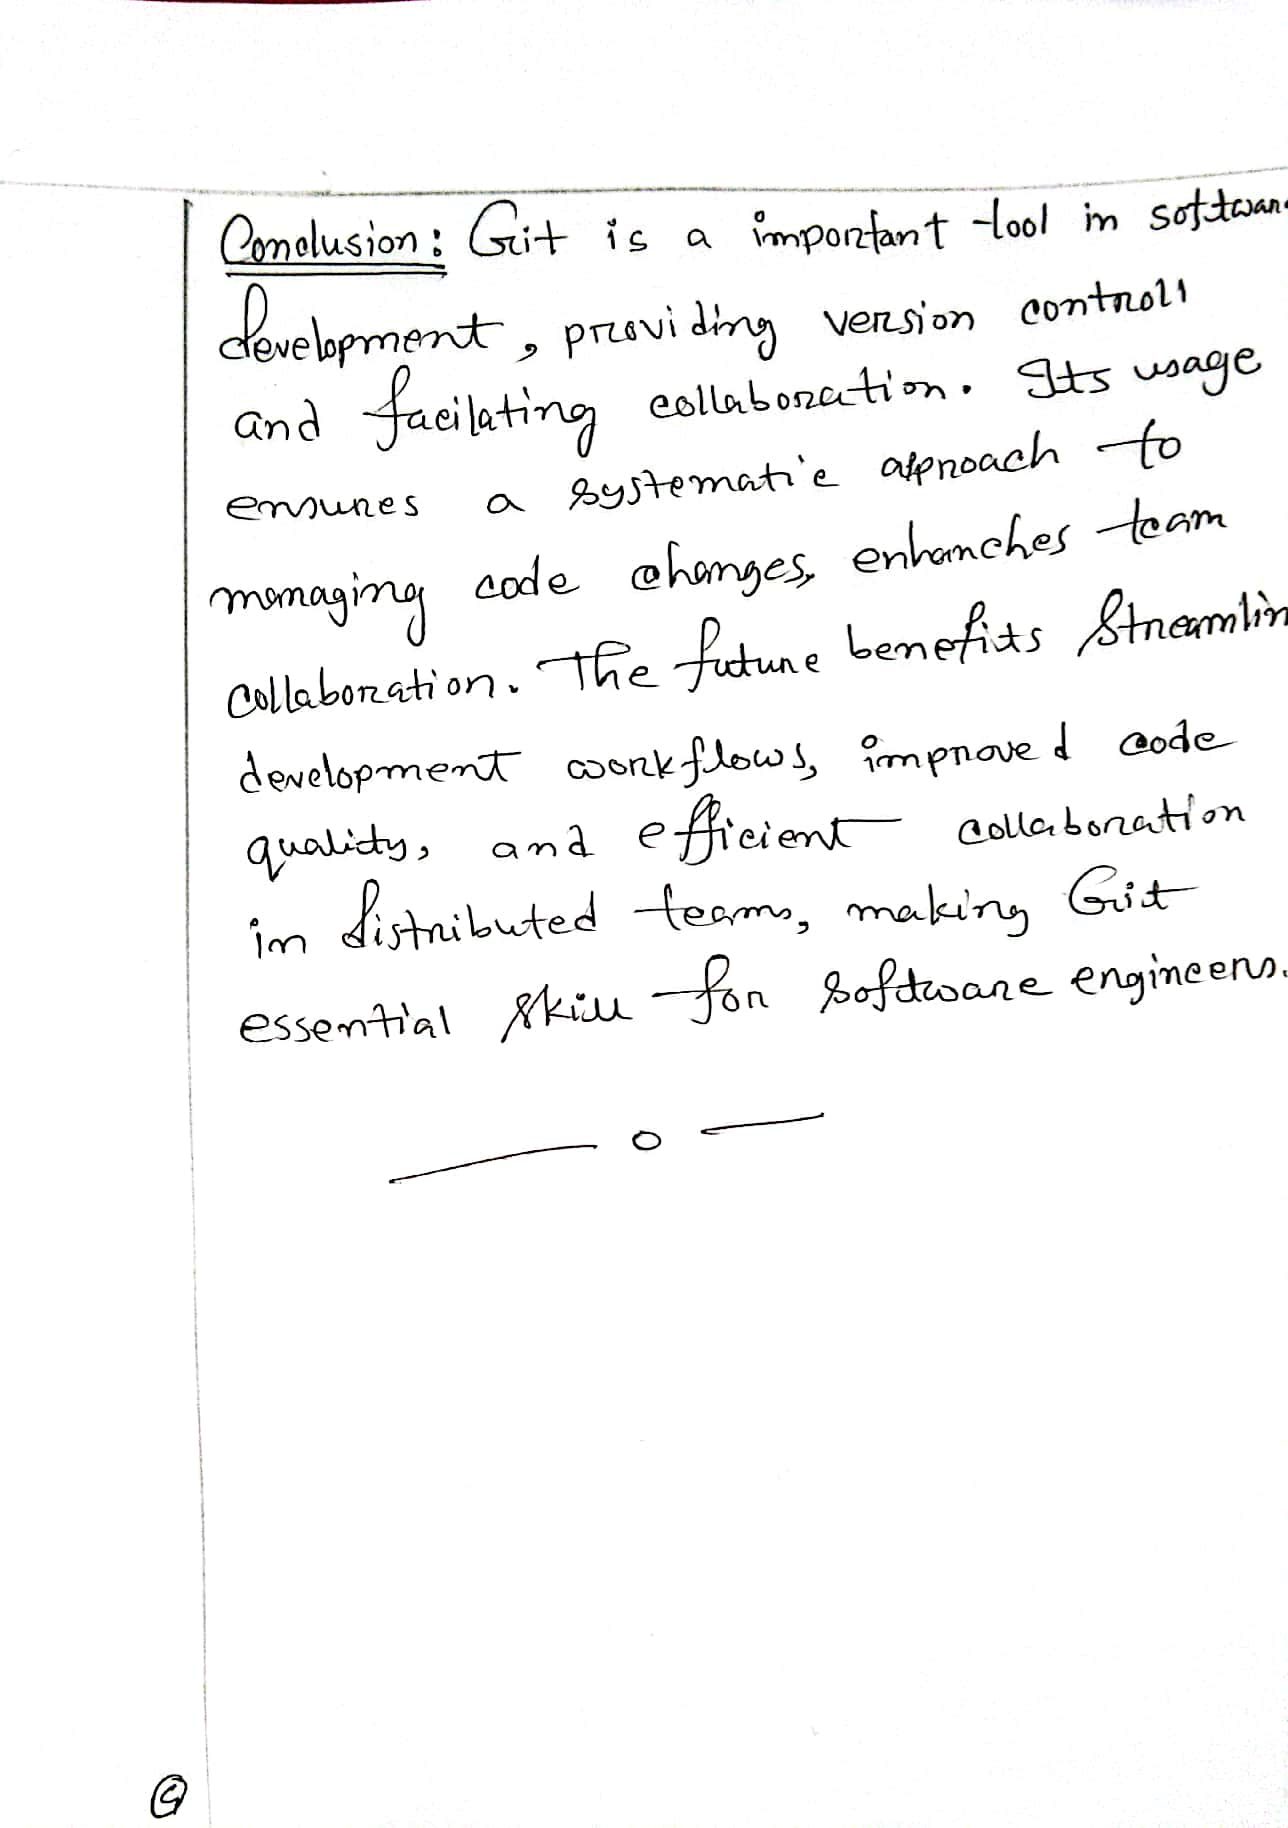 Conclusion: Git is a important tool in softwar
development, providing version controll
and facilating collaboration. Its usage
ensures a systematic approach to
managing code changes, enhanches team
collaboration. The future benefits Streamlin
development workflows, improved code
quality, and efficient collaboration
in distributed teams, making Git
essential skill for software engineers.